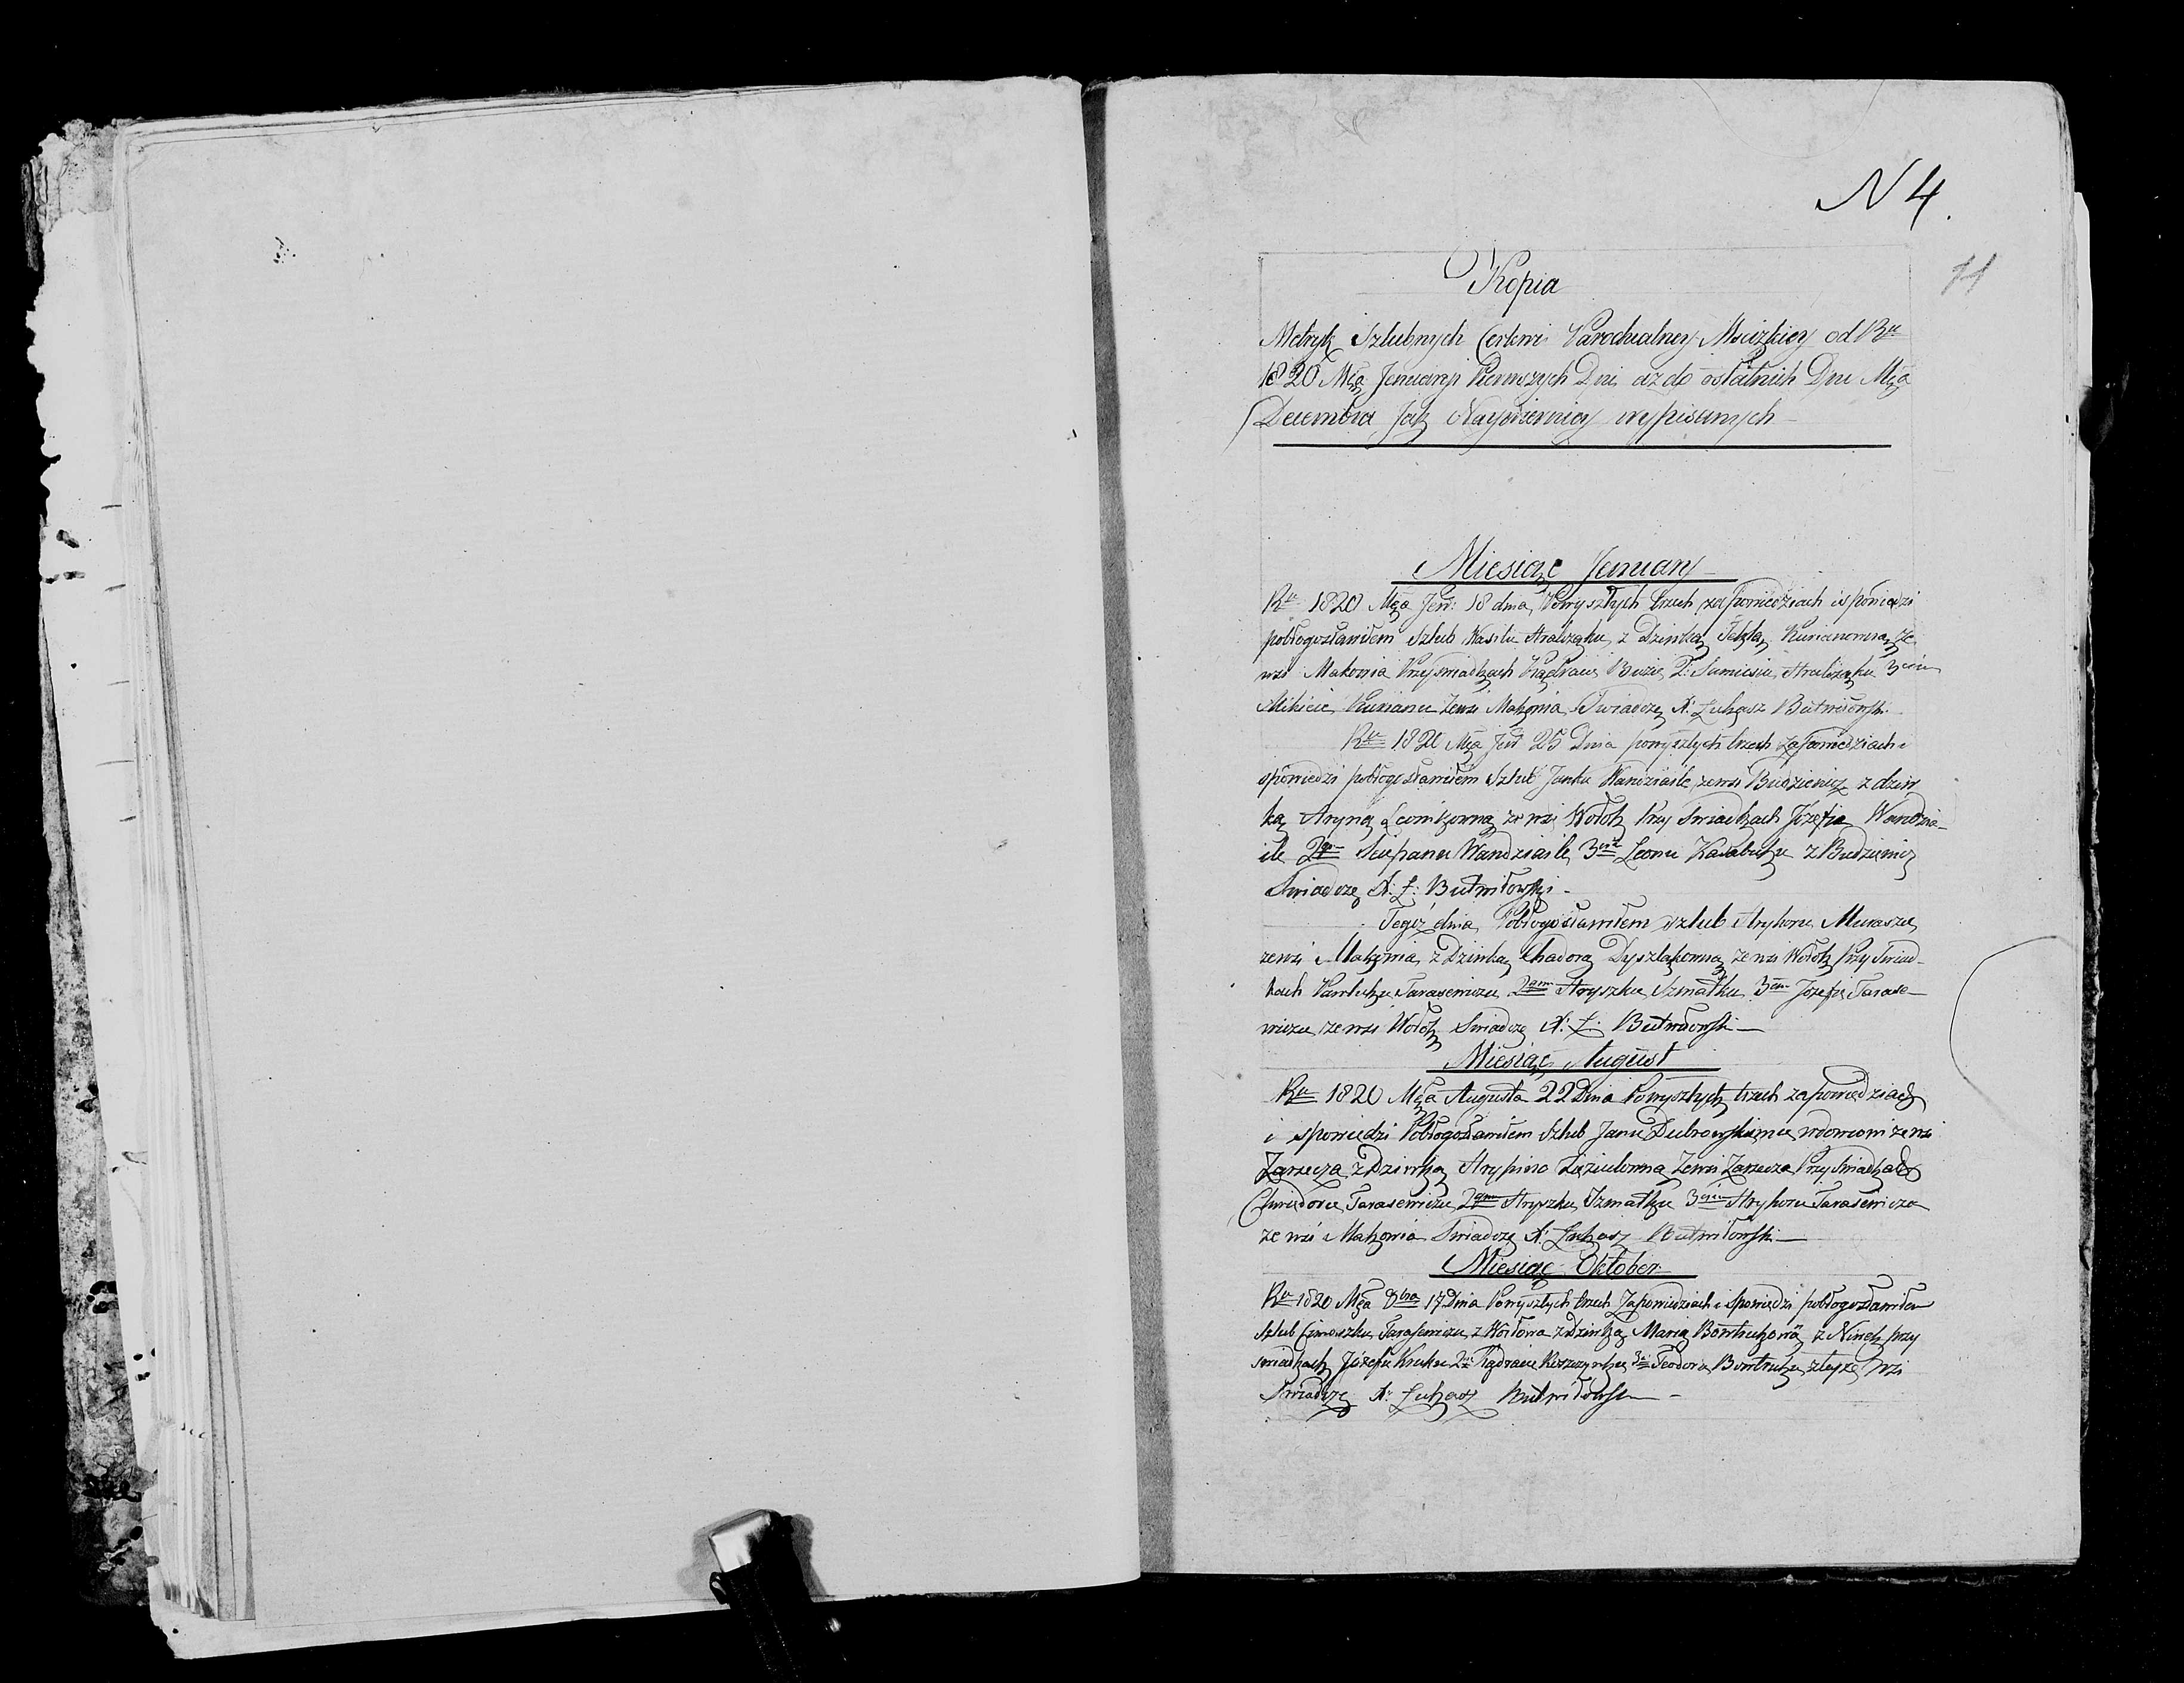 N 4.
11
Kopia
Metryk Szlubnych Cerkwi Parochialney Mscizkiey od Ru
1820 Mca Jenuaryi Pierwszych Dni aż do ostatnich Dni Mca
Decembra Jak Naywierniey wypisanych
Miesiąc Jenuary
Ru 1820 Mca Jen: 18 dnia Powyszłych trzech zapowiedziach i spowiedzi
pobłogosławiłem Szlub Wasilu z Dziewką Teklą Kurianowną ze
wsi Makowia Przy swiadkach Kądracie Buzie 2: 3cim
Mikicie Kurianu zewsi Makowia Swiadczę X. Łukasz Butwiłowski
Ru 1820 Mca Jen 25 Dnia powyszłych trzech zapowiedziach i
spowiedzi pobłogosławiłem Szlub Janku Wandziaile zewsi Budzienicz z dziew
ką Aryną Leonikowną ze wsi Wołok Przy Swiadkach Józefie Wandzia-
ile 2gm Sciepanu Wandziaile 3cim Leonu z Budzienicz
Swiadczę X: Ł: Butwiłowski
Tegoż dnia Pobłogosławiłem szlub Hryhoru Muraszce
zewsi Makowia z Dziewką Chadorą Dyszlakowną ze wsi Wołok Przy Swiad-
kach Pawluku Tarasewiczu 2gm Hryszku Szmatku 3cim Józefie Tarase-
wiczu ze wsi Wołok Swiadczę X: Ł: Butwiłowski
Miesiąc August
Ru 1820 Mca Augusta 22 Dnia Powyszłych trzech zapowiedziach
i spowiedzi Pobłogosławiłem szlub Janu Dubrowskiemu wdowcowi ze wsi
Zarzecza z Dziewką Zewsi Zarzecza Przy swiadkach
Chwiedoru Tarasewiczu 2gm Hryszku Szmatku 3cim Hryhoru Tarasewicza
ze wsi Makowia Swiadczę X: Łukasz Butwiłowski
Miesiąc Oktober
Ru 1820 Mca 8bra 17 Dnia Powyszłych trzech Zapowiedziach i Spowiedzi pobłogosławiłem
szlub Cimoszku Tarasewiczu z z Dziewką Marią z Ninek przy
swiadkach Józefu Kruku 2m Kądracie 3m Teodora z teyże wsi
Swiadczę X: Łukasz Butwiłowski